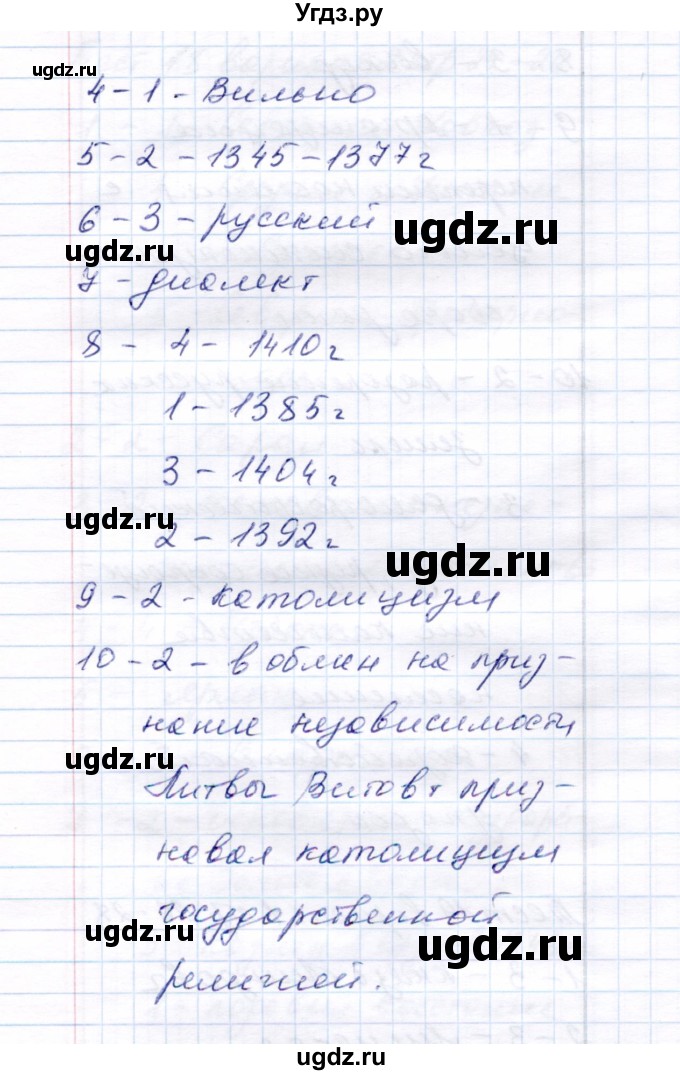 Угдз.ру
ugdz.ru
4 - 1 - Вильно
5 - 2 - 1345 - 1377 г
6 - 3 - русский
ugdz.ru
ugdz.ru
7 - диалект
8 - 4 - 1410 г
1 - 1385 г
3 - 1404 г
ugdz.ru
2 - 1392 г
ugdz.ru
9 - 2 - католицизм
10 - 2 - в облин на приз-
ugdz.ru
нание независимости
Литвы Витовт приз-
ugdz.ru
новал католицизм
государственной
ugdz.ru
ugdz.ru
религией.
ugdz.ru